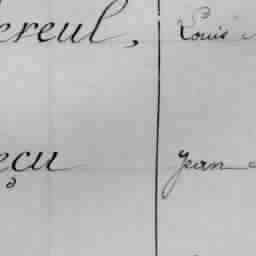 ereul, Louis
eçu Jean